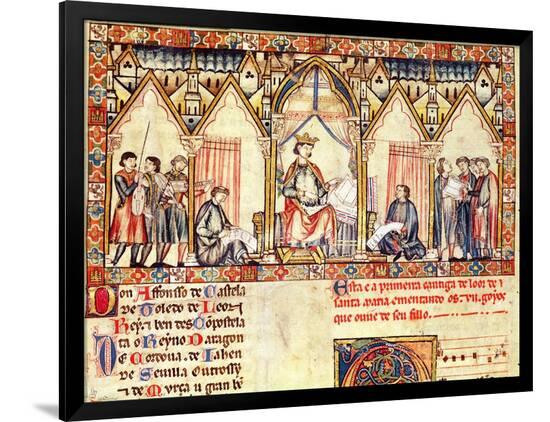 Don Affonso de Castela
de Toledo de Leon
Rey e ben des Conpostela
ta o Reyno Daragon
De Cordoua de Iahen
de Seuilla outrossy
de Murça u gran be
Esta e a primeira cantiga de loor de
santa maria ementando os. vii. goyos
que ouue de seu fillo.